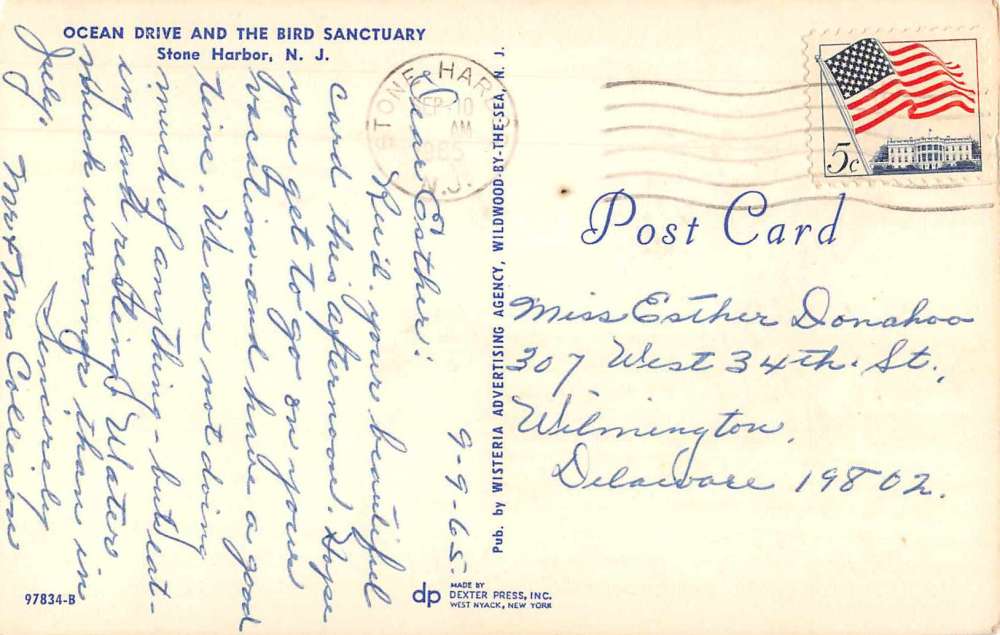 OCEAN DRIVE AND THE BIRD SANCTUARY
Stone Harbor, N. J.
9-9-65.
Dear Esther:
Rec'd. your beautiful
card this afternoon. Hope
you get to go on your
vacation - and have a good
time. We are not doing
much of anything - but eat-
ing and resting. Water
much warmer than in
July.
Sincerely
Mr & Mrs Collison
97834-B
Pub. by WISTERIA ADVERTISING AGENCY, WILDWOOD-BY-THE-SEA, N. J.
dp
MADE BY
DEXTER PRESS, INC.
WEST NYACK, NEW YORK
STONE HARBOR
SEP 10
AM
1965
N.J.
5c
Post Card
Miss Esther Donahoo
307 West 34th. St.,
Wilmington,
Delaware 19802.